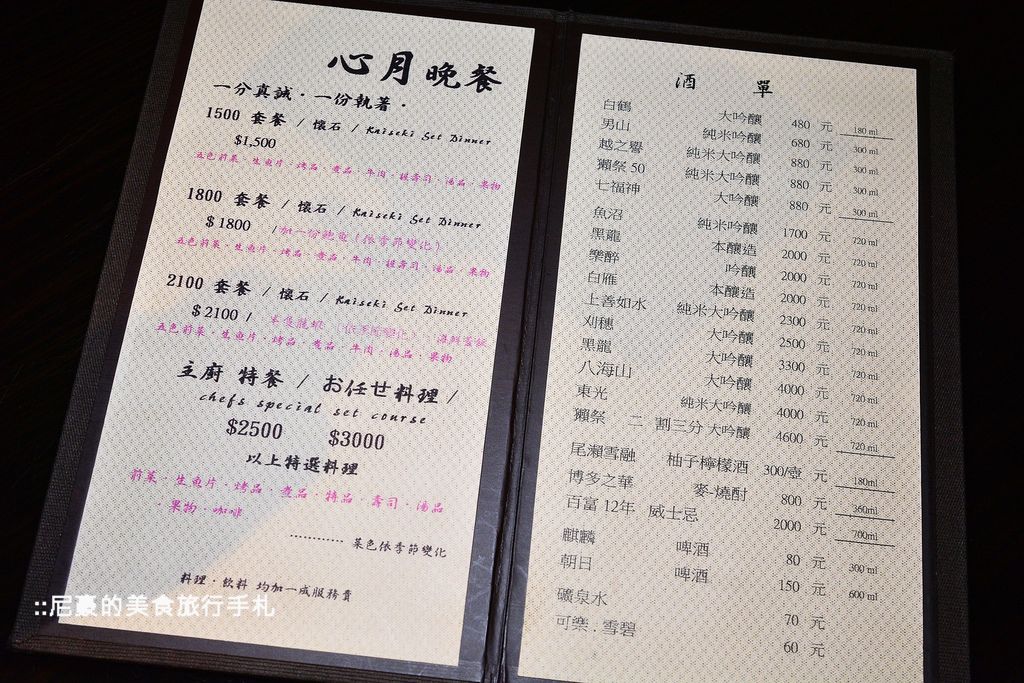 心月晚餐
一分真誠．一份執著．
1500 套餐 / 懷石 / Kaiseki Set Dinner
$1,500
五色前菜．生魚片．烤品．煮品．牛肉．握壽司．湯品．果物
1800 套餐 / 懷石 / Kaiseki Set Dinner
$ 1800 /加一份鮑魚(依季節變化)
五色前菜．生魚片．烤品．煮品．牛肉．握壽司．湯品．果物
2100 套餐 / 懷石 / Kaiseki Set Dinner
$ 2100 / 半隻龍蝦 (依季節變化)
五色前菜．生魚片．烤品．煮品．牛肉．湯品．果物
主廚 特餐 / お任せ料理 /
chefs special set course
$2500 $3000
以上特選料理
前菜．生魚片．烤品．煮品．特品．壽司．湯品
．果物．咖啡
............ 菜色依季節變化
料理．飲料 均加一成服務費
::尼豪的美食旅行手札
酒 單
白鶴 大吟釀 480 元 180 ml
男山 純米吟釀 680 元 300 ml
越之譽 純米大吟釀 880 元 300 ml
獺祭 50 純米大吟釀 880 元 300 ml
七福神 大吟釀 880 元 300 ml
魚沼 純米吟釀 1700 元 720 ml
黑龍 本釀造 2000 元 720 ml
樂醉 吟釀 2000 元 720 ml
白雁 本釀造 2000 元 720 ml
上善如水 純米吟釀 2300 元 720 ml
刈穗 大吟釀 2500 元 720 ml
黑龍 大吟釀 3300 元 720 ml
八海山 大吟釀 4000 元 720 ml
東光 純米大吟釀 4000 元 720 ml
獺祭 二 割三分 大吟釀 4600 元 720 ml
尾瀨雪融 柚子檸檬酒 300/壺 元 180ml
博多之華 麥-燒酎 800 元 360ml
百富 12年 威士忌 2000 元 700ml
麒麟 啤酒 80 元 300 ml
朝日 啤酒 150 元 600 ml
礦泉水 70 元
可樂 . 雪碧 60 元